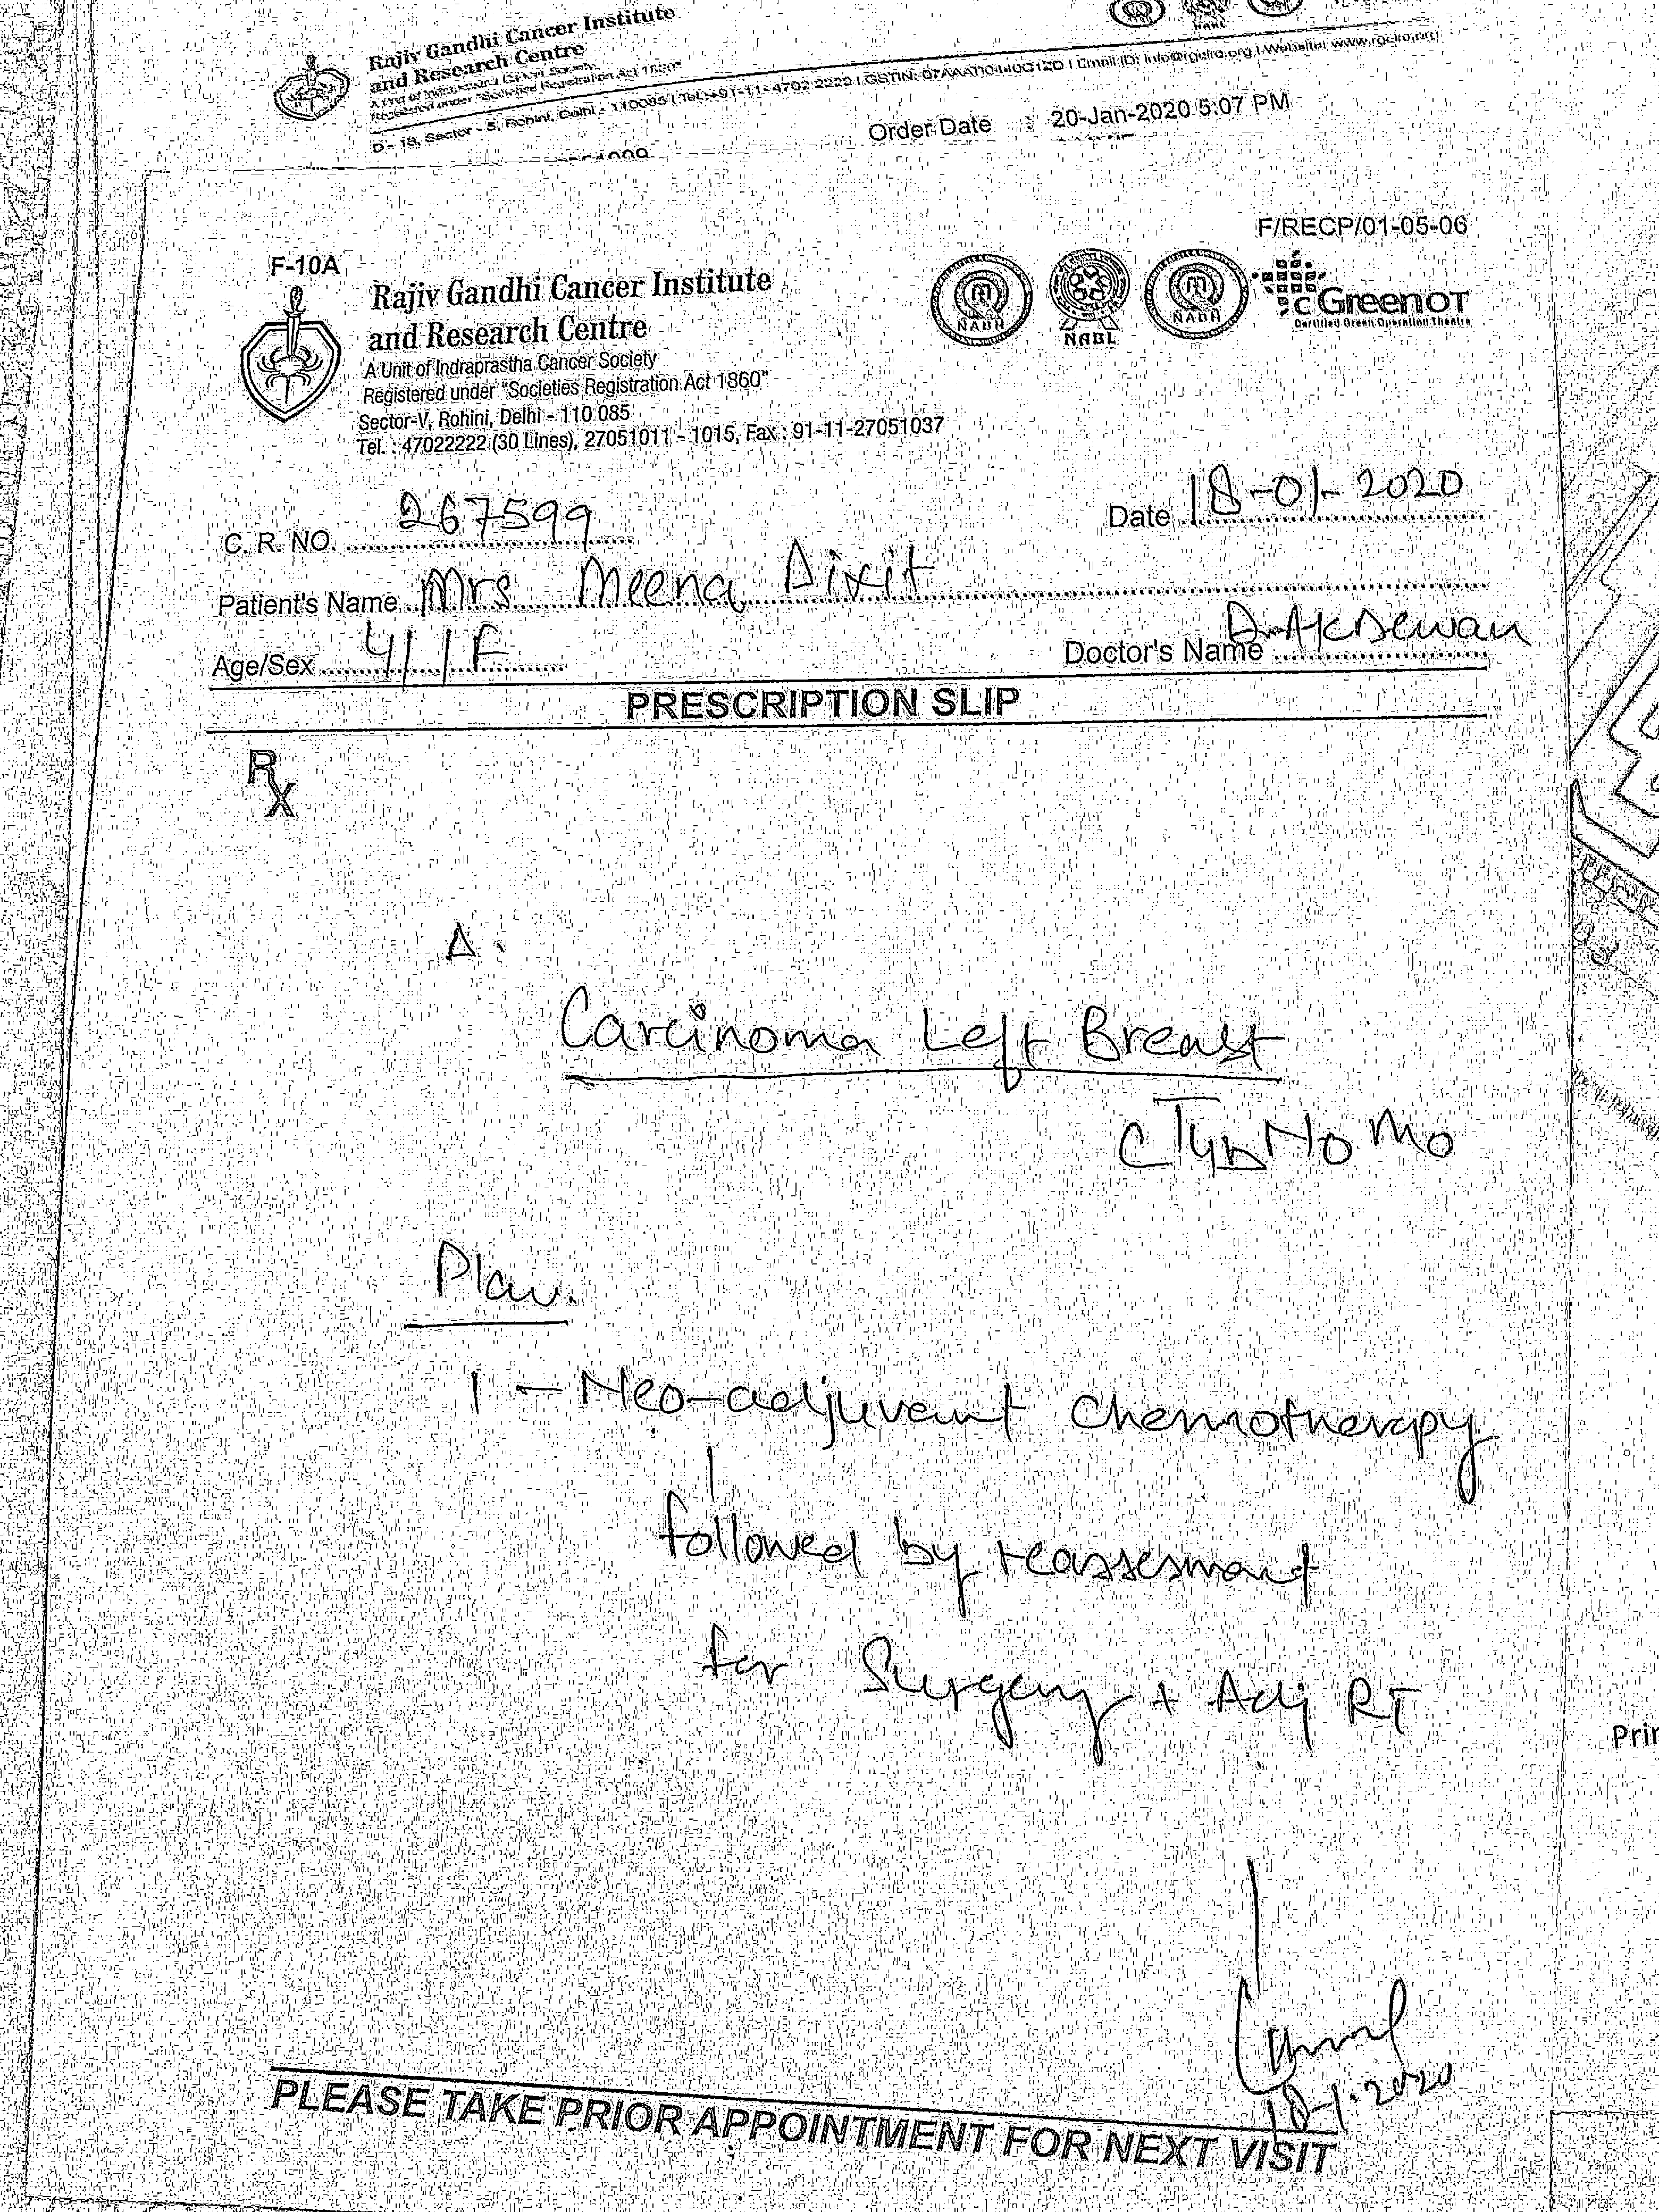 Rajiv Gandhi Cancer Institute
and Research Centre
A Unit of Indraprastha Cancer Society
Registered under "Societies Registration Act 1860"
D - 18, Sector - 5, Rohini, Delhi - 110085 | Tel: +91-11- 4702 2222 | GSTIN: | Email ID: info@rgcirc.org | Website: www.rgcirc.org
Order Date : 20-Jan-2020 5:07 PM
F/RECP/01-05-06
F-10A
Rajiv Gandhi Cancer Institute
and Research Centre
A Unit of Indraprastha Cancer Society
Registered under "Societies Registration Act 1860"
Sector-V, Rohini, Delhi - 110 085
Tel. : 47022222 (30 Lines), 27051011 - 1015, Fax : 91-11-27051037
NABH
NABL
NABH
GreenOT
Certified Green Operation Theatre
C. R. NO. 267599
Date 18-01-2020
Patient's Name Mrs Meena Dixit
Age/Sex 41 / F
Doctor's Name Dr AK Dewan
PRESCRIPTION SLIP
Rx
Δ.
Carcinoma Left Breast
cT4bN0M0
Plan.
1 - Neo-adjuvant Chemotherapy
followed by reassesmant
for Surgery + Adj RT
18-1-2020
PLEASE TAKE PRIOR APPOINTMENT FOR NEXT VISIT
Prin